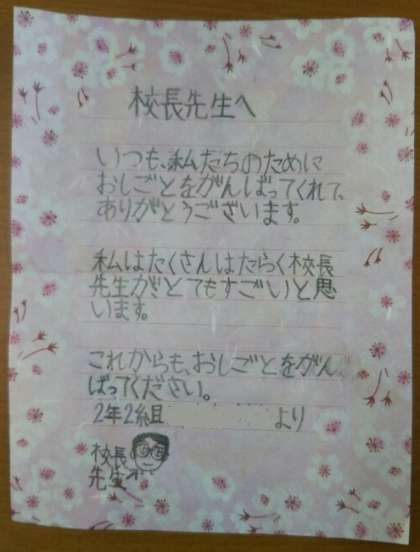 校長先生へ
いつも、私たちのために
おしごとをがんばってくれて、
ありがとうございます。
私はたくさんはたらく校長
先生がとてもすごいと思
います。
これからも、おしごとをがん
ばってください。
2年2組 より
校長
先生